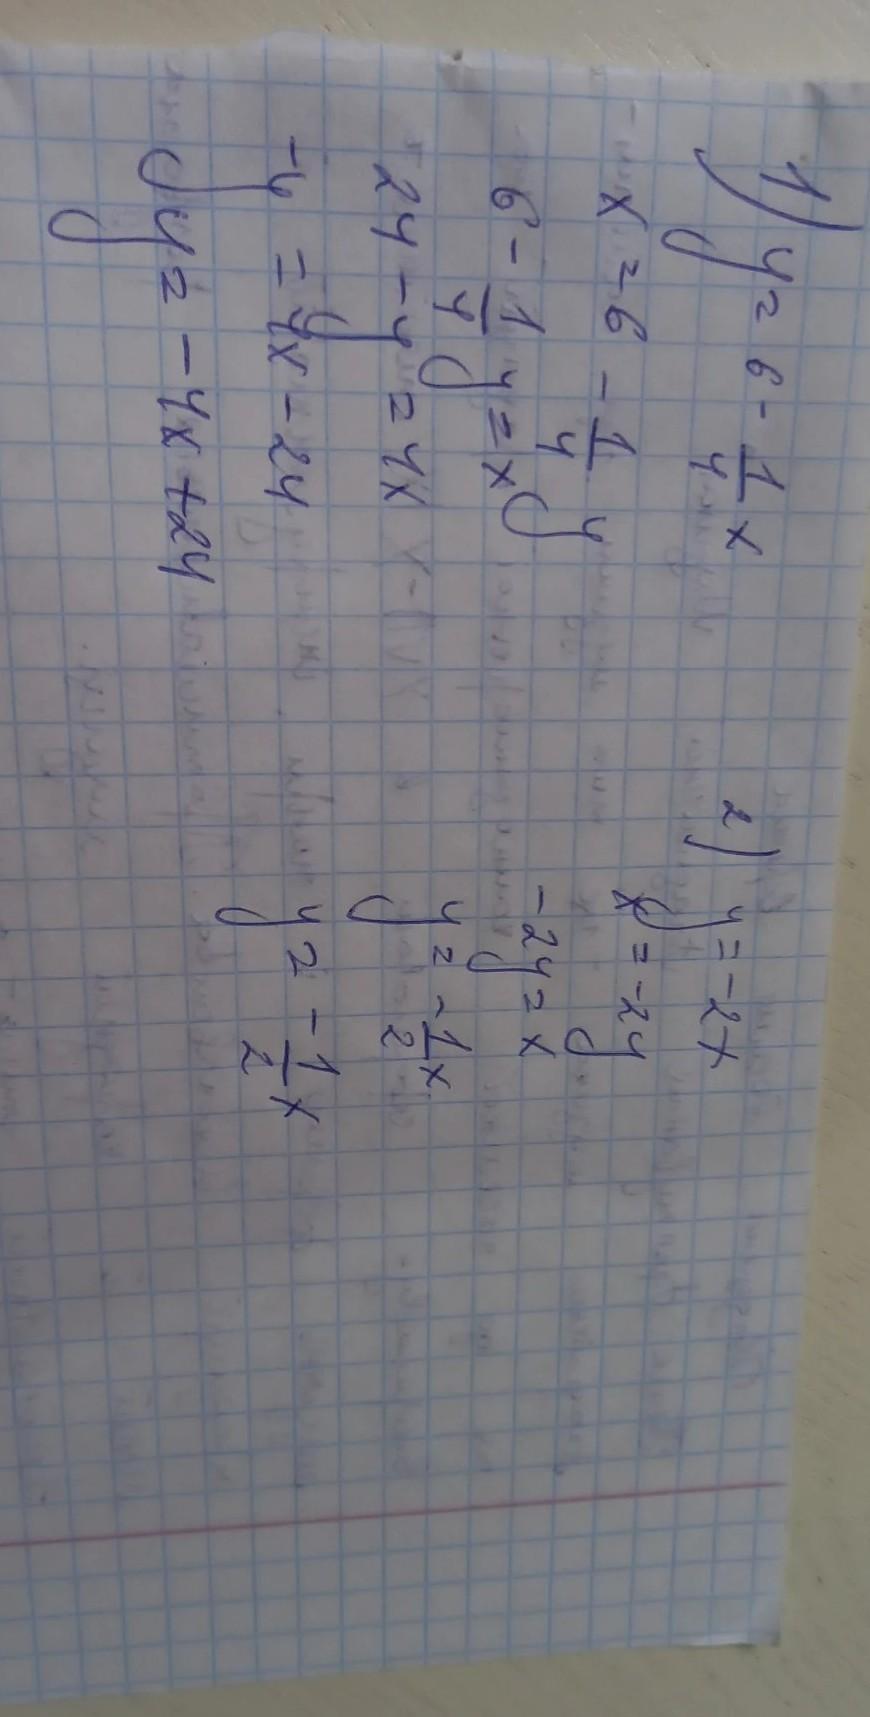 1) y = 6 - 1/4 x
x = 6 - 1/4 y
6 - 1/4 y = x
24 - y = 4x
-y = 4x - 24
y = -4x + 24
2) y = -2x
x = -2y
-2y = x
y = -1/2 x
y = -1/2 x